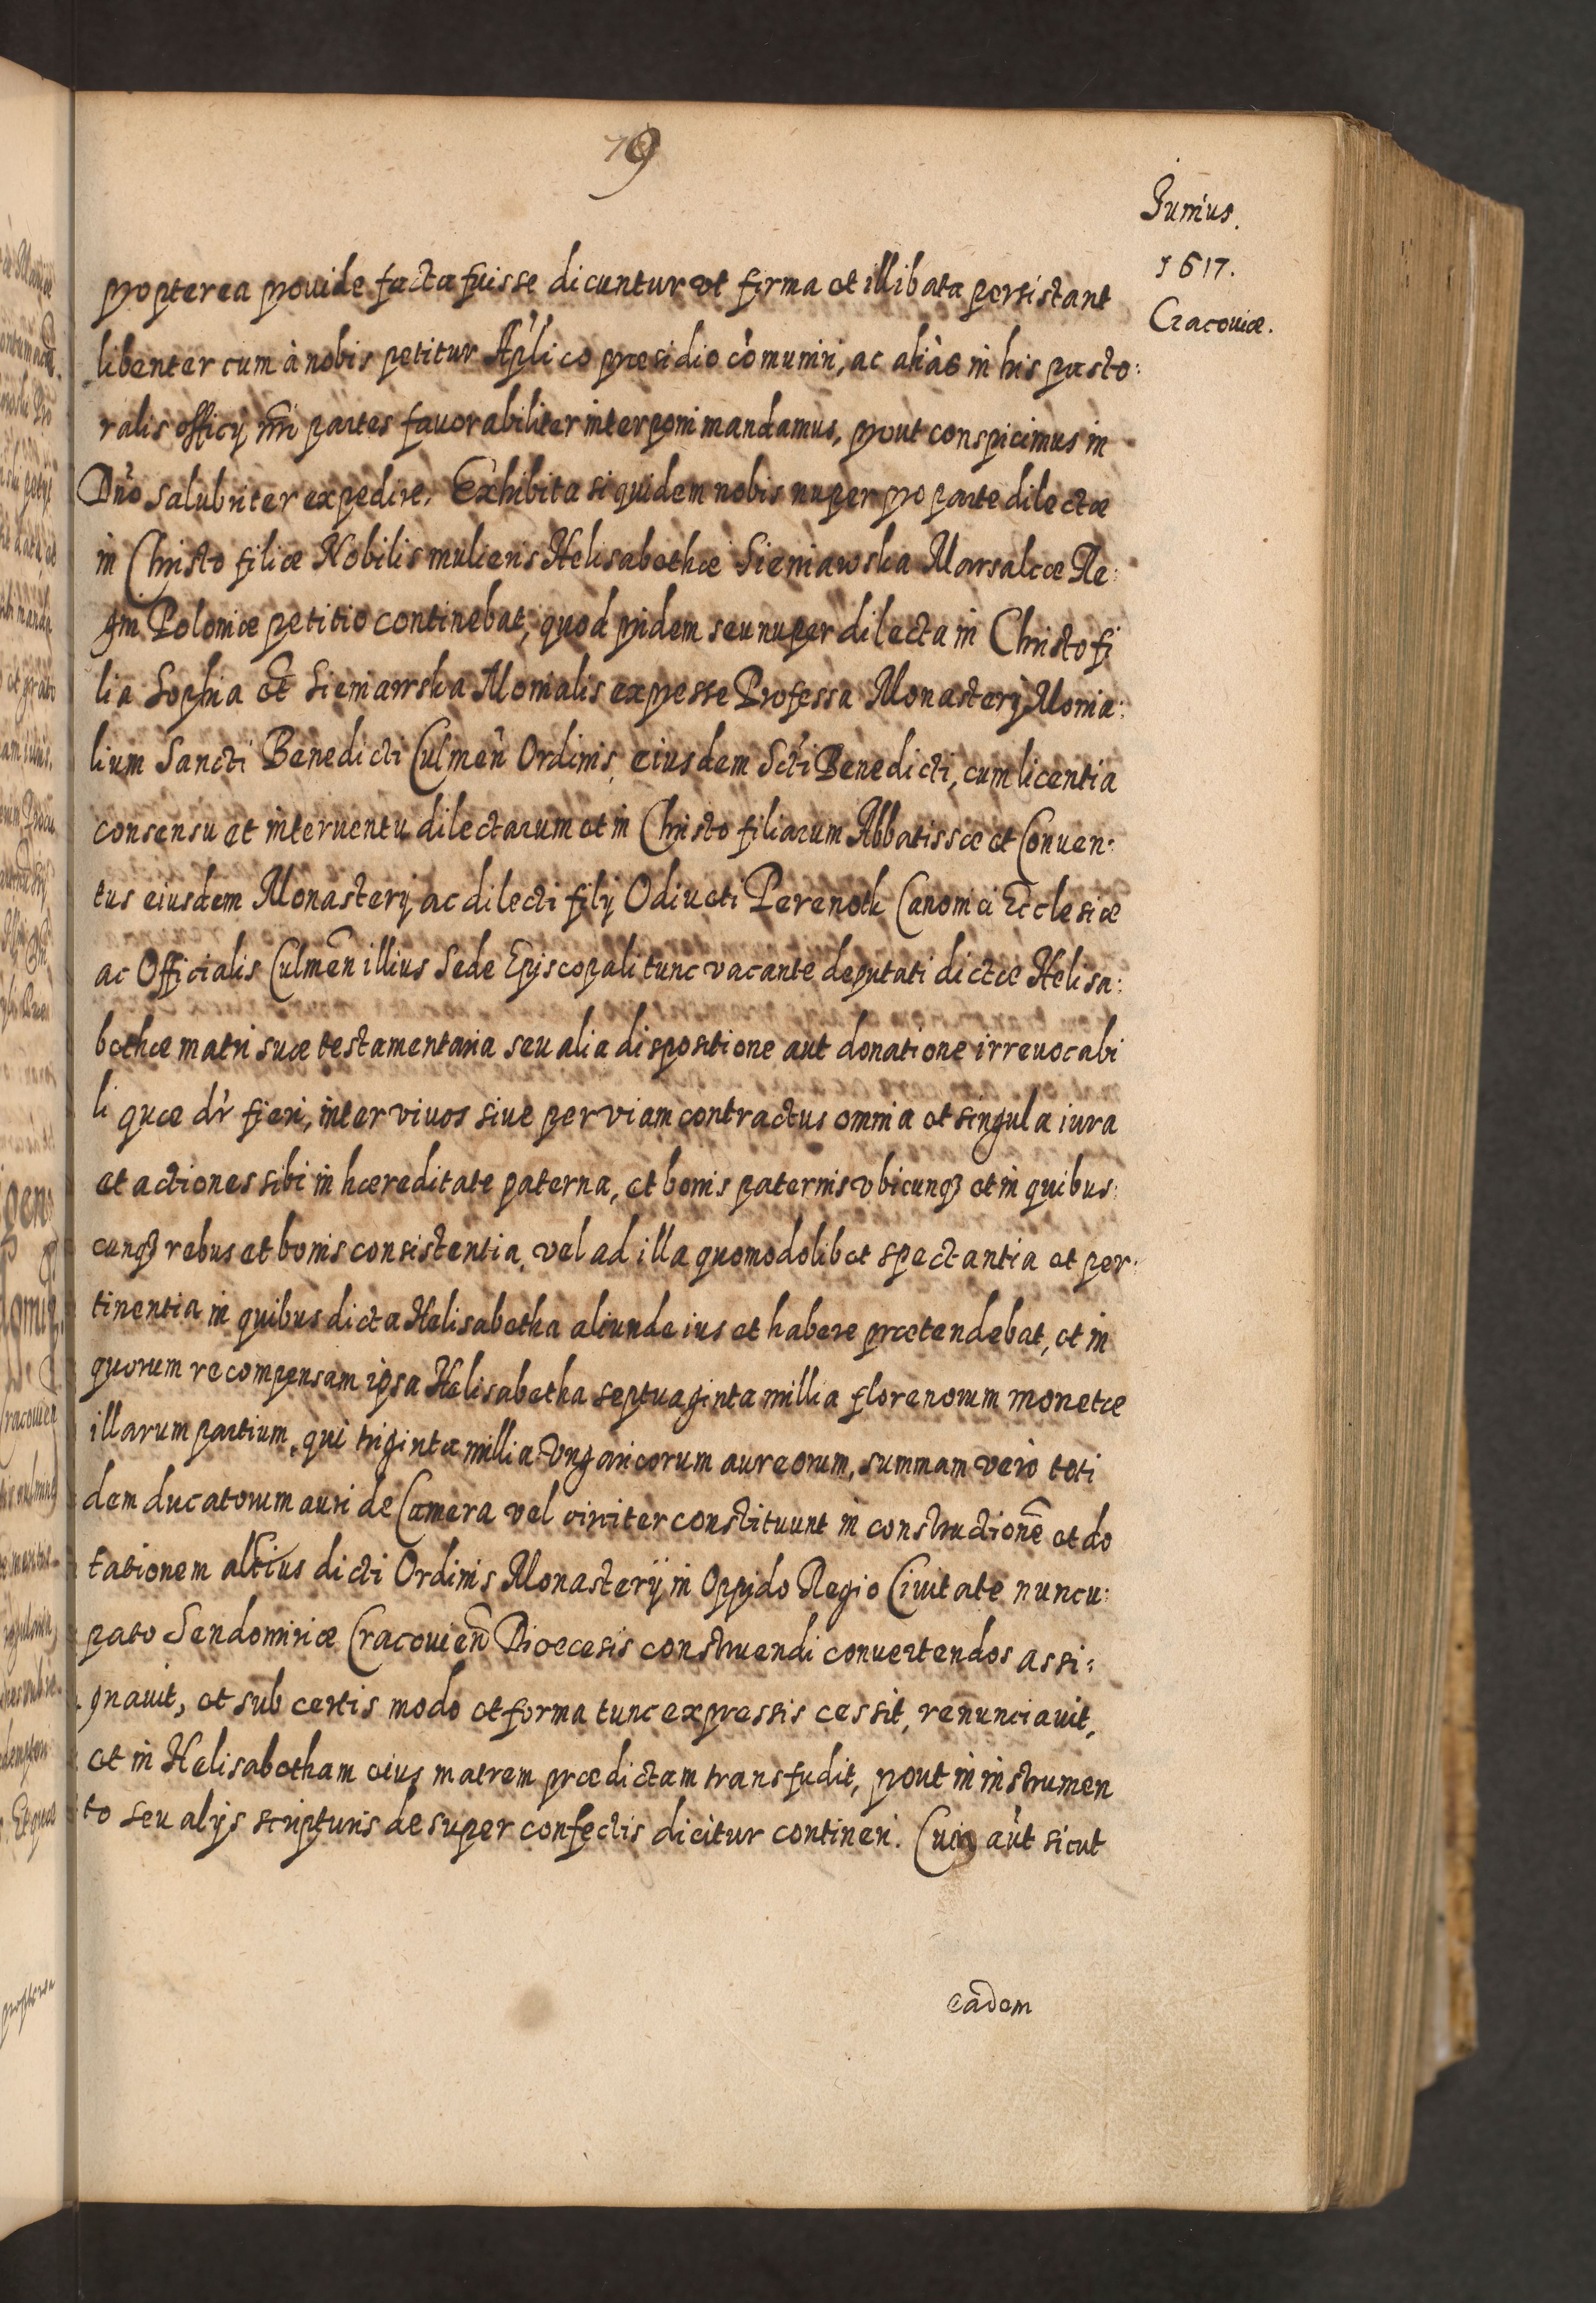 79
Junius.
1617.
Cracouiæ.
propterea prouide facta fuisse dicuntur vt firma et illibata persistant
libenter cum à nobis petitur Aplico præsidio comuniri, ac aliàs in his pasto:
ralis officij nri partes fauorabiliter interponi mandamus, prout conspicimus in
Dno salubriter expedire. Exhibita siquidem nobis nuper pro parte dilectæ
in Christo filiæ Nobilis mulieris Helisabethæ Sieniawska Marsalcæ Re:
gni Poloniæ petitio continebat, quod pridem seu nuper dilecta in Christo fi
lia Sophia et Sieniawska Monialis expresse Professa Monasterij Monia:
lium Sancti Benedicti Culmen Ordinis eiusdem Scti Benedicti, cum licentia
consensu et interuentu dilectarum et in Christo filiarum Abbatissæ et Conuen:
tus eiusdem Monasterij ac dilecti filij Odiucti Perenoth Canonici Ecclesiæ
ac Officialis Culmen illius Sede Episcopali tunc vacante deputati dictæ Helisa:
bethæ matri suæ testamentaria seu alia dispositione aut donatione irreuocabi
li quæ dr fieri, inter viuos siue per viam contractus omnia et singula iura
et actiones sibi in hæreditate paterna, et bonis paternis vbicunq et in quibus:
cunq rebus et bonis consistentia, vel ad illa quomodolibet spectantia et per:
tinentia in quibus dicta Helisabetha aliunde ius et habere prætendebat, et in
quorum recompensam ipsa Helisabetha septuaginta millia florenorum monetæ
illarum partium, qui triginta millia Vngaricorum aureorum, summam verò toti
dem ducatorum auri de Camera vel circiter constituunt in constructionē et do
tationem alterius dicti Ordinis Monasterij in Oppido Regio Ciuitate nuncu:
pato Sendomiriæ Cracouien Diœcesis construendi conuertendos assi:
gnauit, et sub certis modo et forma tunc expressis cessit, renunciauit,
et in Helisabetham eius matrem prædictam transfudit, prout in instrumen
to seu alijs scripturis desuper confectis dicitur contineri. Cum aut sicut
eadem